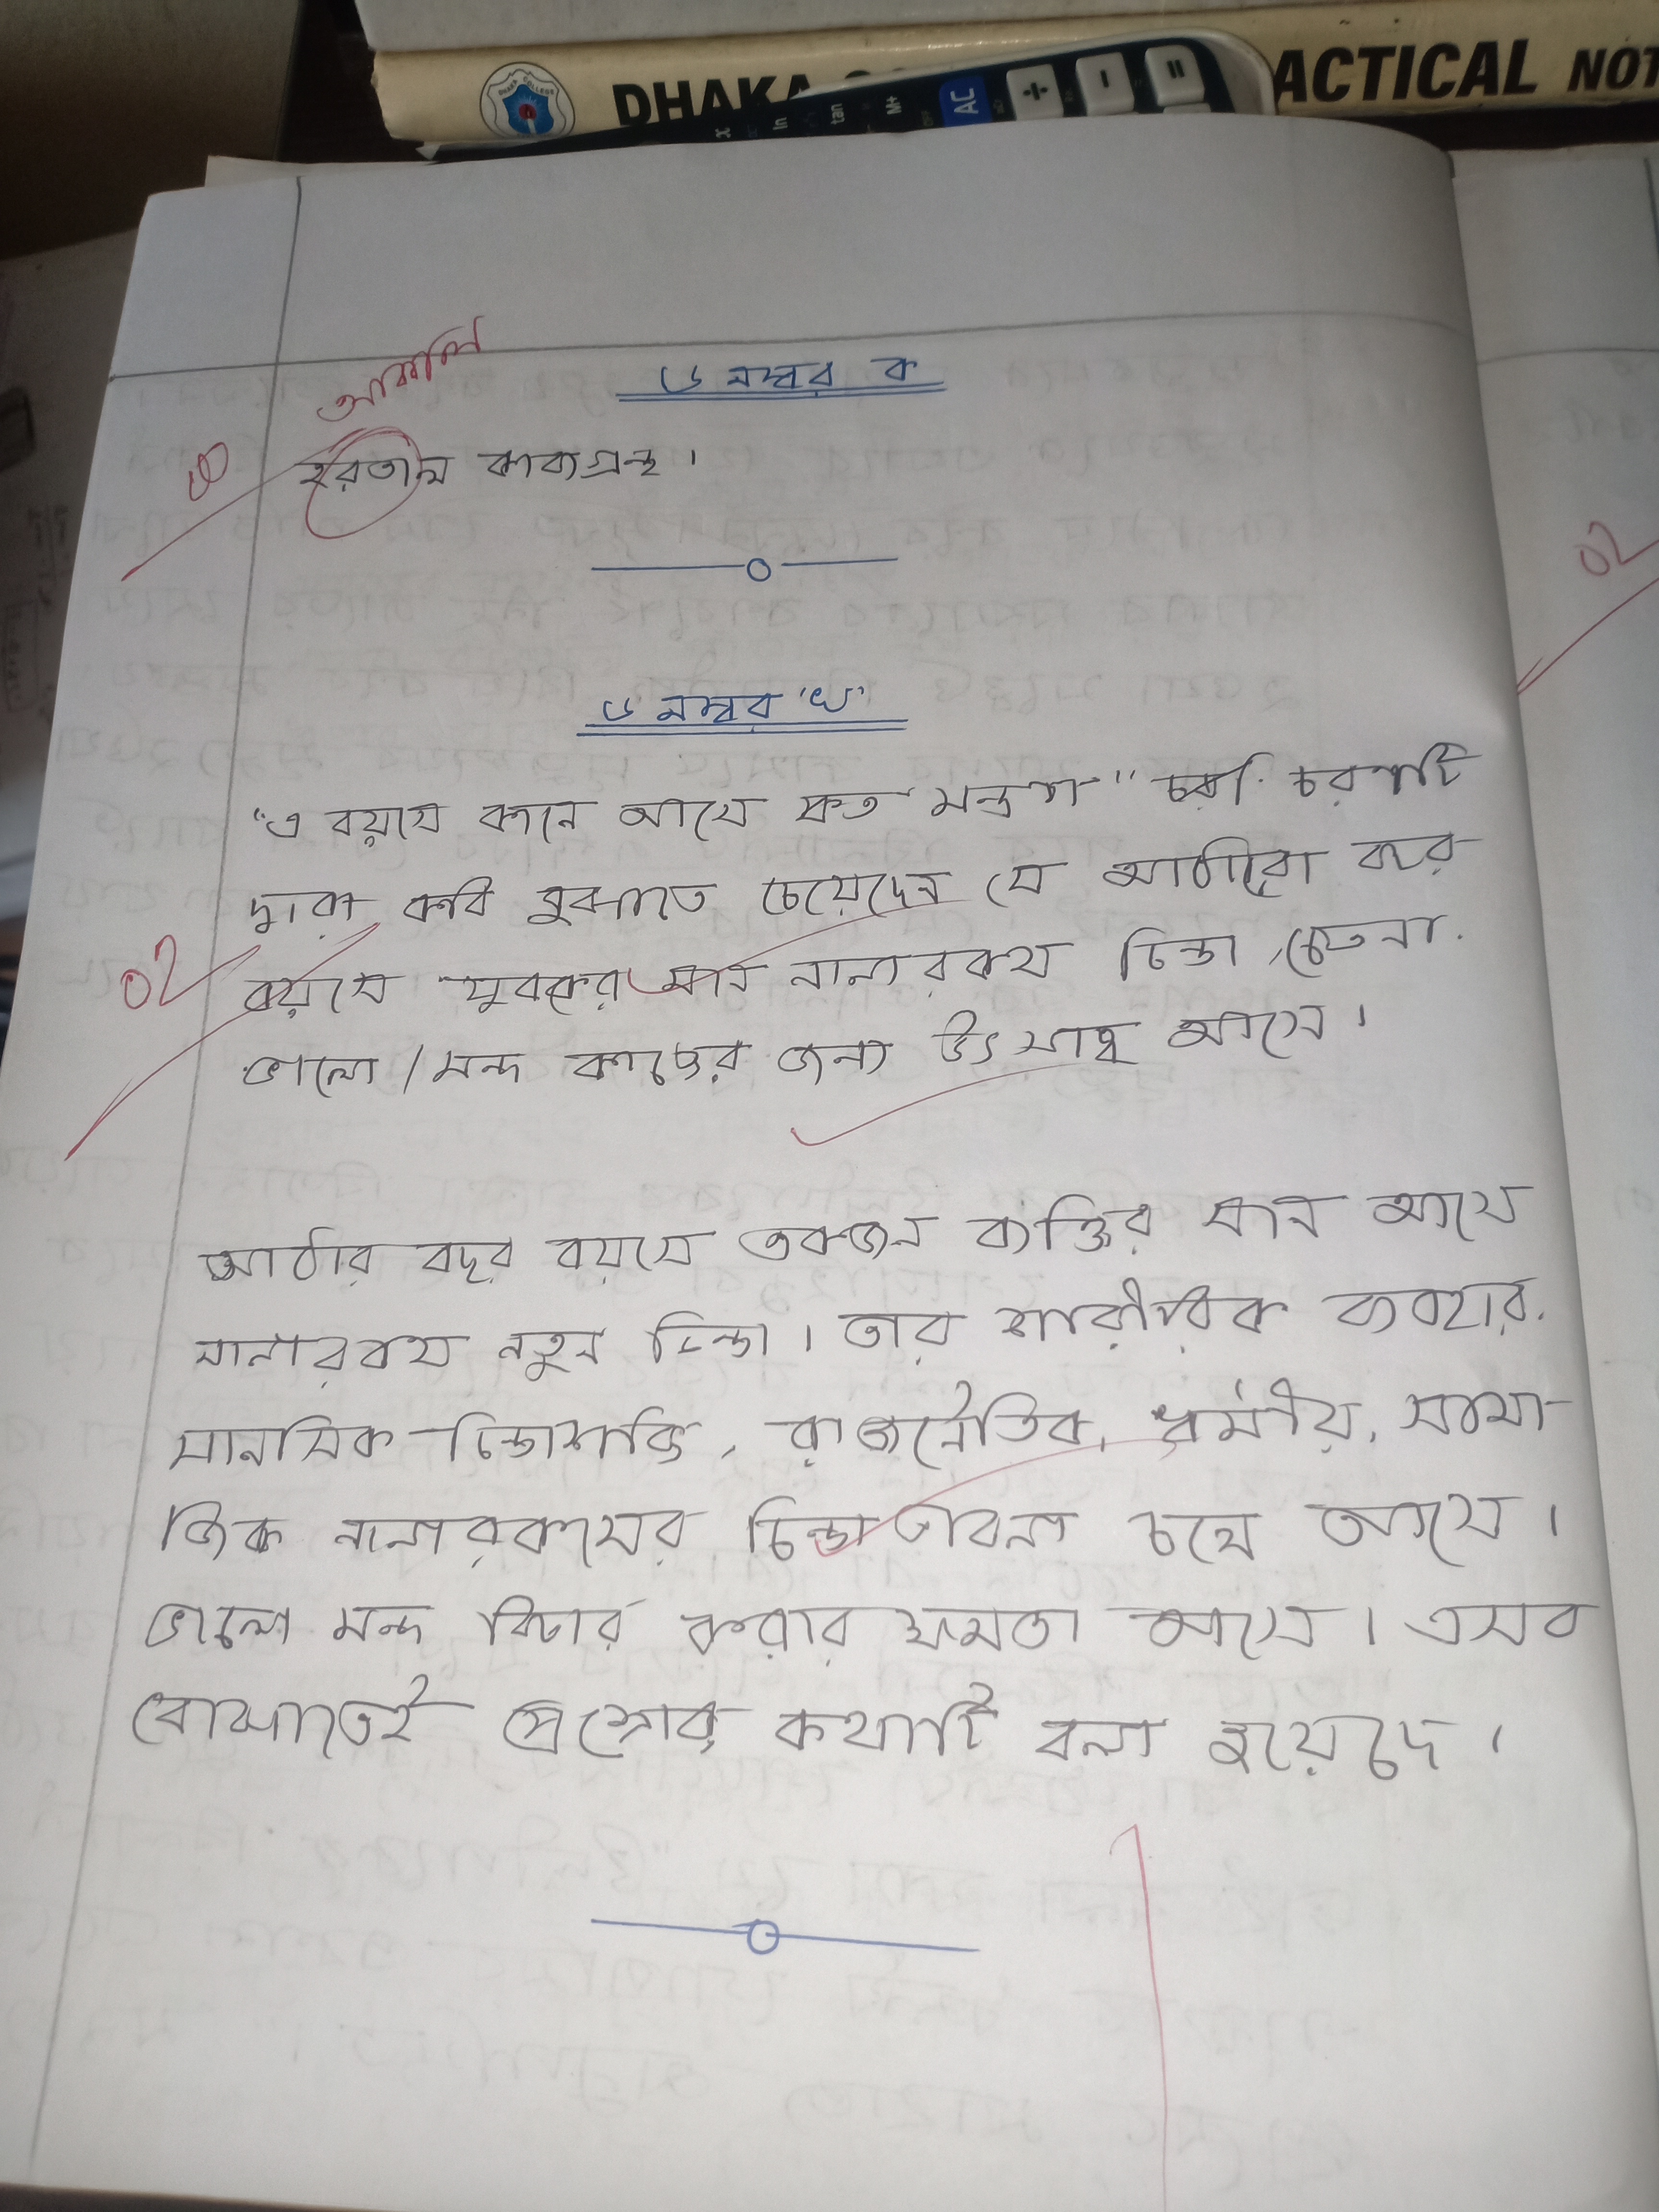 DHAKA CO ACTICAL NOT
DHAKA COLLEGE
x ln tan M+ OFF AC ÷ - =
৬ নম্বর ক
আকাল
০
হরতাল কাব্যগ্রন্থ।
০২
৬ নম্বর 'খ'
"এ বয়সে কানে আসে কত মন্ত্রণা" চরণটি
দ্বারা কবি বুঝাতে চেয়েছেন যে আঠারো বছর
০২
বয়সে যুবকের মনে নানারকম চিন্তা, চেতনা.
ভালো/মন্দ কাজের জন্য উৎসাহ আসে।
আঠার বছর বয়সে একজন ব্যক্তির মনে আসে
নানারকম নতুন চিন্তা। তার শারীরিক ব্যবহার,
মানসিক চিন্তাশক্তি, রাজনৈতিক, ধর্মীয়, সামা-
জিক নানারকমের চিন্তা ভাবনা চলে আসে।
ভালো মন্দ বিচার করার ক্ষমতা আসে। এসব
বোঝাতেই প্রশ্নোর কথাটি বলা হয়েছে।